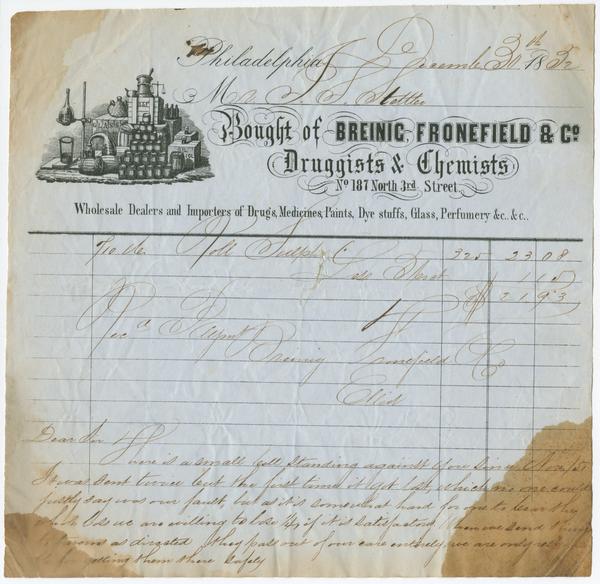 Philadelphia, December 30th 1852
Mr
Bought of BREINIG, FRONEFIELD & Co
Druggists & Chemists
No 187 North 3rd Street,
Wholesale Dealers and Importers of Drugs, Medicines, Paints, Dye stuffs, Glass, Perfumery &c. &c.
Roll Sulph 325 23 08
Less 1 15
$ 21 93
Recd Paymt
Breinig Fronefield & Co
Dear Sir
There is a small bill standing against you since
It was sent twice but the first time it got lost, which no one could
justly say was our fault, but as it is somewhat hard for one to bear the
whole loss we are willing to lose ½ if it is satisfactory, when we send
as directed they pass out of our care entirely, we are only
for getting them there safely